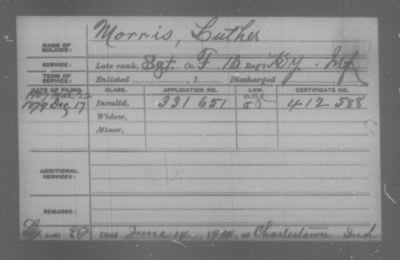 Morris, Luther
NAME OF SOLDIER:
SERVICE: Late rank, Sgt. Co. F, 18 Reg't Ky. Inf
TERM OF SERVICE: Enlisted , 1 Discharged
DATE OF FILING. CLASS. APPLICATION NO. LAW. CERTIFICATE NO.
1879 Dec. 17 Invalid, 331 651 412 588
Widow,
Minor,
ADDITIONAL SERVICES:
REMARKS:
Died June 14, at Charlestown Ind